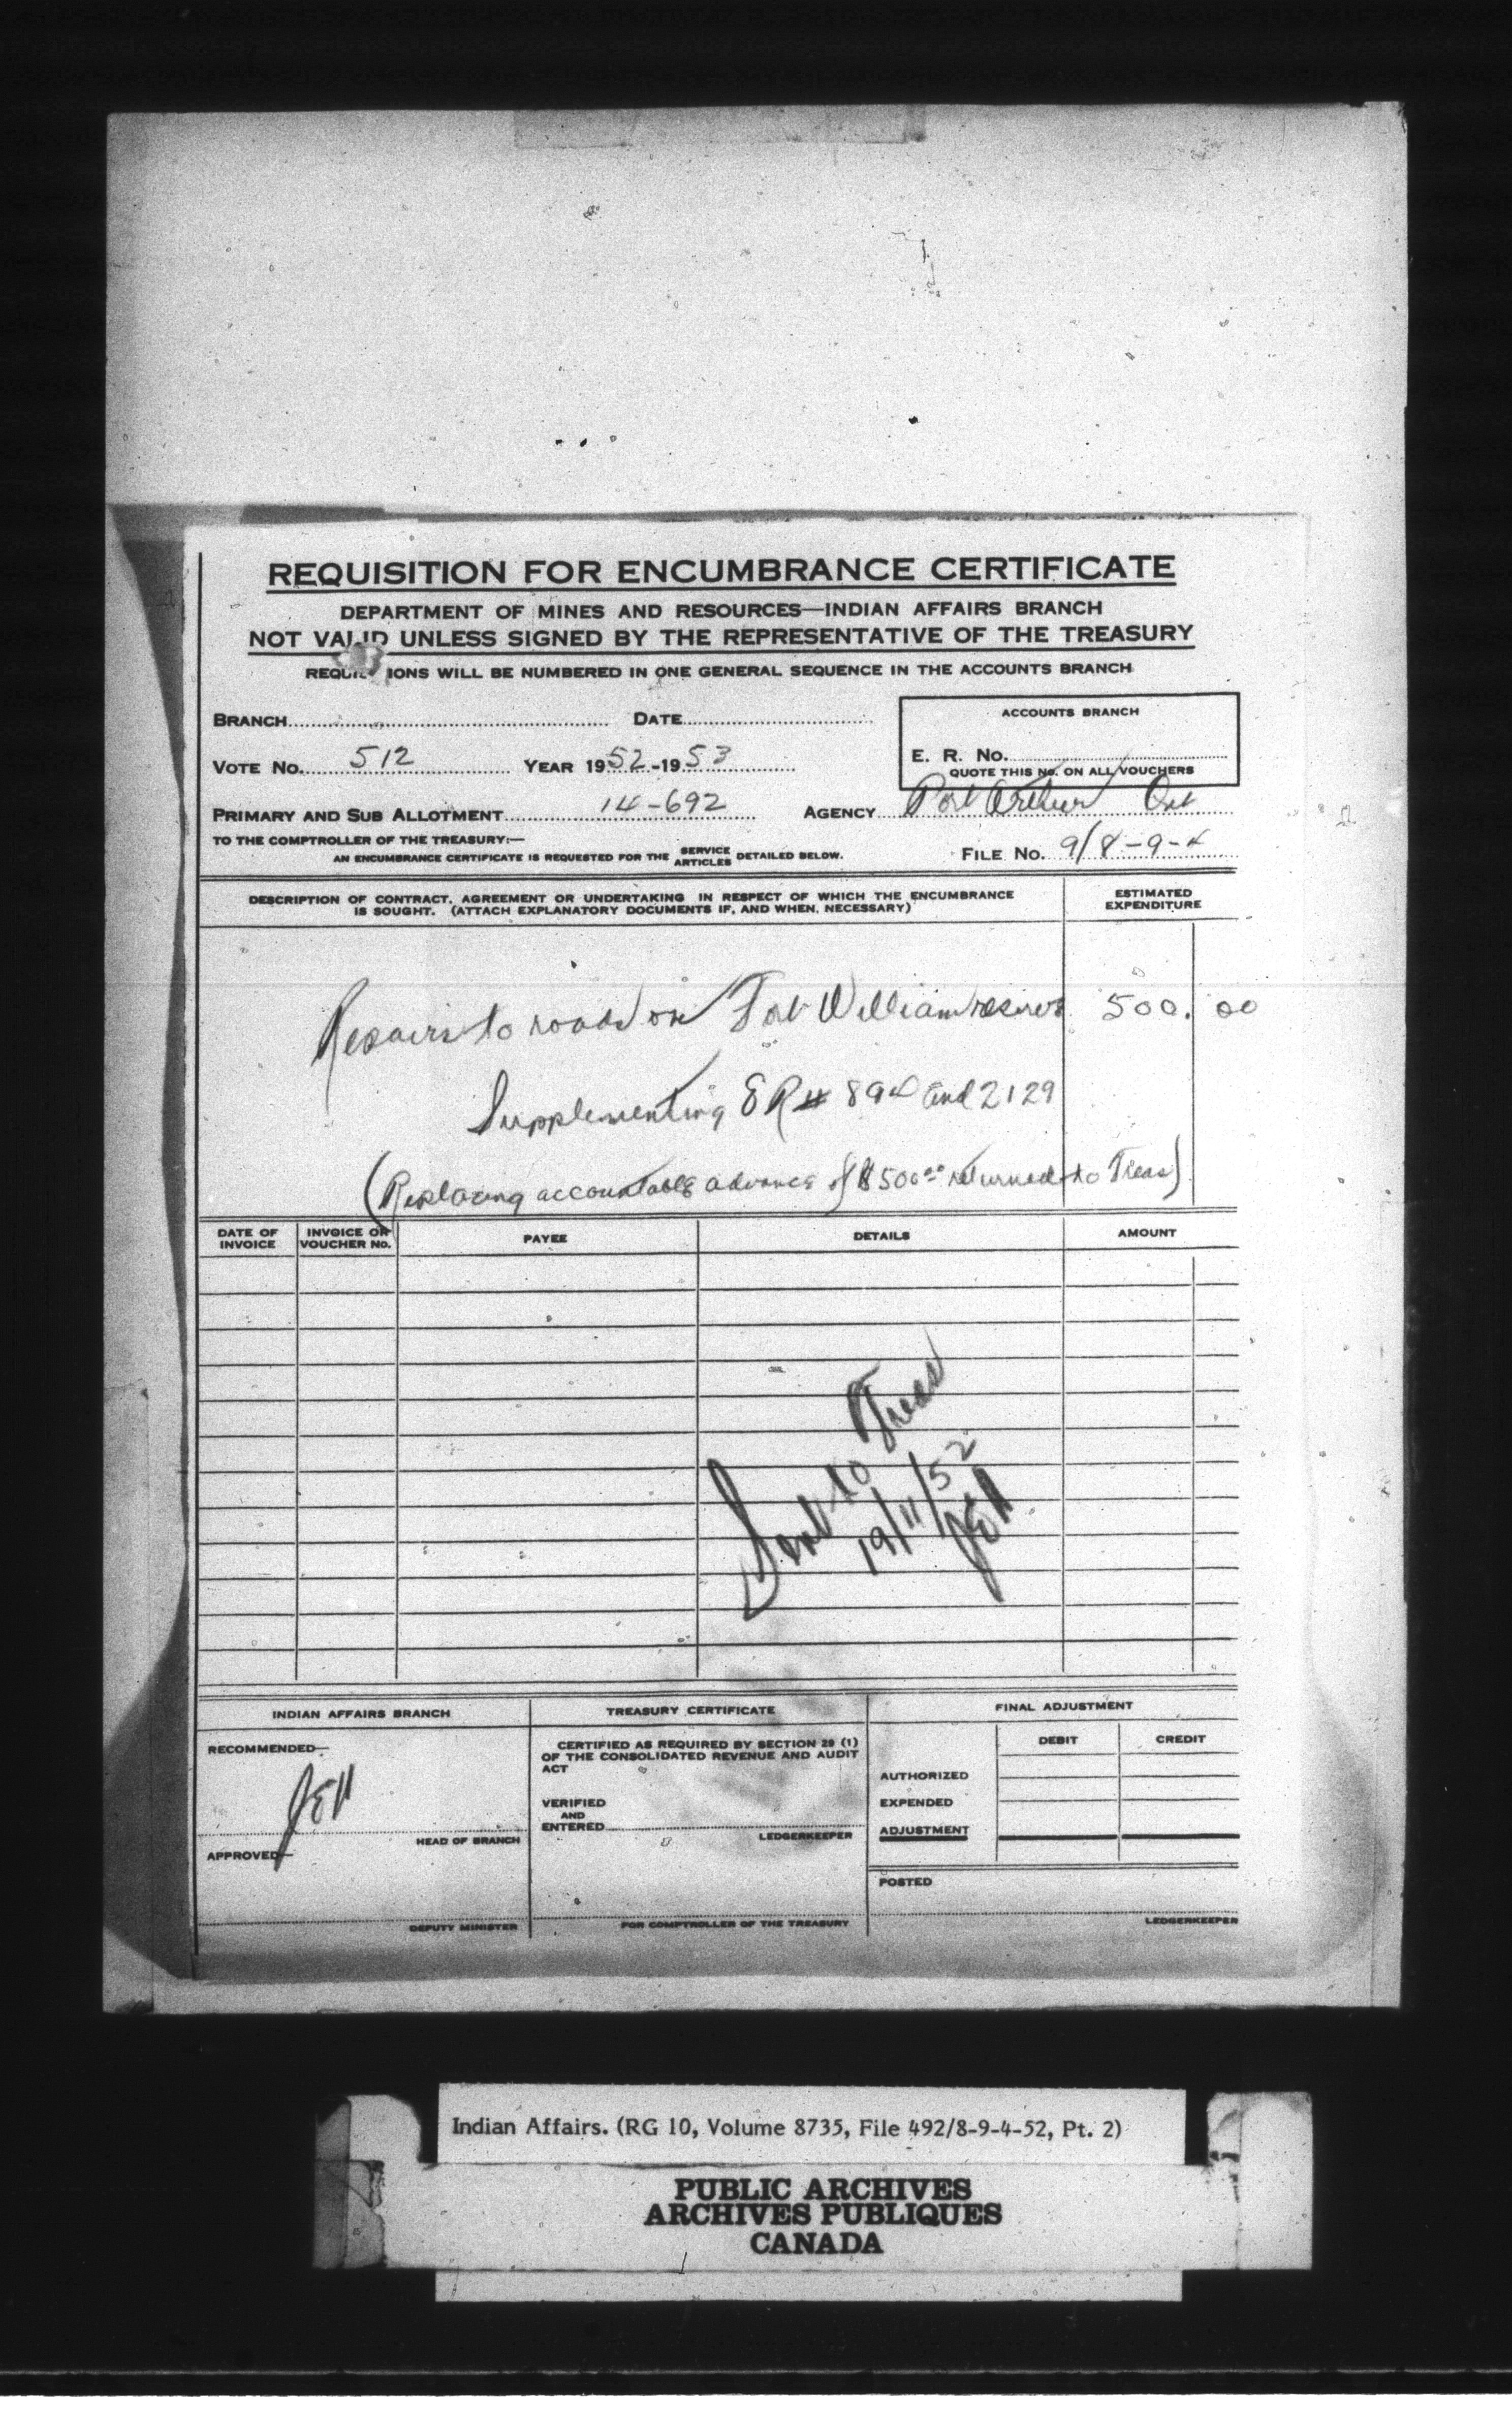 REQUISITION FOR ENCUMBRANCE CERTIFICATE
DEPARTMENT OF MINES AND RESOURCES—INDIAN AFFAIRS BRANCH
NOT VALID UNLESS SIGNED BY THE REPRESENTATIVE OF THE TREASURY
REQUI IONS WILL BE NUMBERED IN ONE GENERAL SEQUENCE IN THE ACCOUNTS BRANCH
BRANCH DATE
ACCOUNTS BRANCH
VOTE No. 512 YEAR 1952-1953
E. R. No.
QUOTE THIS No. ON ALL VOUCHERS
PRIMARY AND SUB ALLOTMENT 14-692 AGENCY Port Arthur Ont
TO THE COMPTROLLER OF THE TREASURY:—
AN ENCUMBRANCE CERTIFICATE IS REQUESTED FOR THE SERVICE ARTICLES DETAILED BELOW.
FILE No. 9/8-9-4
DESCRIPTION OF CONTRACT, AGREEMENT OR UNDERTAKING IN RESPECT OF WHICH THE ENCUMBRANCE
IS SOUGHT. (ATTACH EXPLANATORY DOCUMENTS IF, AND WHEN, NECESSARY)
ESTIMATED
EXPENDITURE
Repairs to roads on Fort William reserve 500. 00
Supplementing ER# 894 and 2129
(Replacing accountable advance of $500.00 returned to Treas)
DATE OF
INVOICE
INVOICE OR
VOUCHER No.
PAYEE
DETAILS
AMOUNT
Sent to Treas
19/11/52
JEH
INDIAN AFFAIRS BRANCH
RECOMMENDED—
JEH
HEAD OF BRANCH
APPROVED—
DEPUTY MINISTER
TREASURY CERTIFICATE
CERTIFIED AS REQUIRED BY SECTION 29 (1)
OF THE CONSOLIDATED REVENUE AND AUDIT
ACT
VERIFIED
AND
ENTERED
LEDGERKEEPER
FOR COMPTROLLER OF THE TREASURY
FINAL ADJUSTMENT
DEBIT CREDIT
AUTHORIZED
EXPENDED
ADJUSTMENT
POSTED
LEDGERKEEPER
Indian Affairs. (RG 10, Volume 8735, File 492/8-9-4-52, Pt. 2)
PUBLIC ARCHIVES
ARCHIVES PUBLIQUES
CANADA